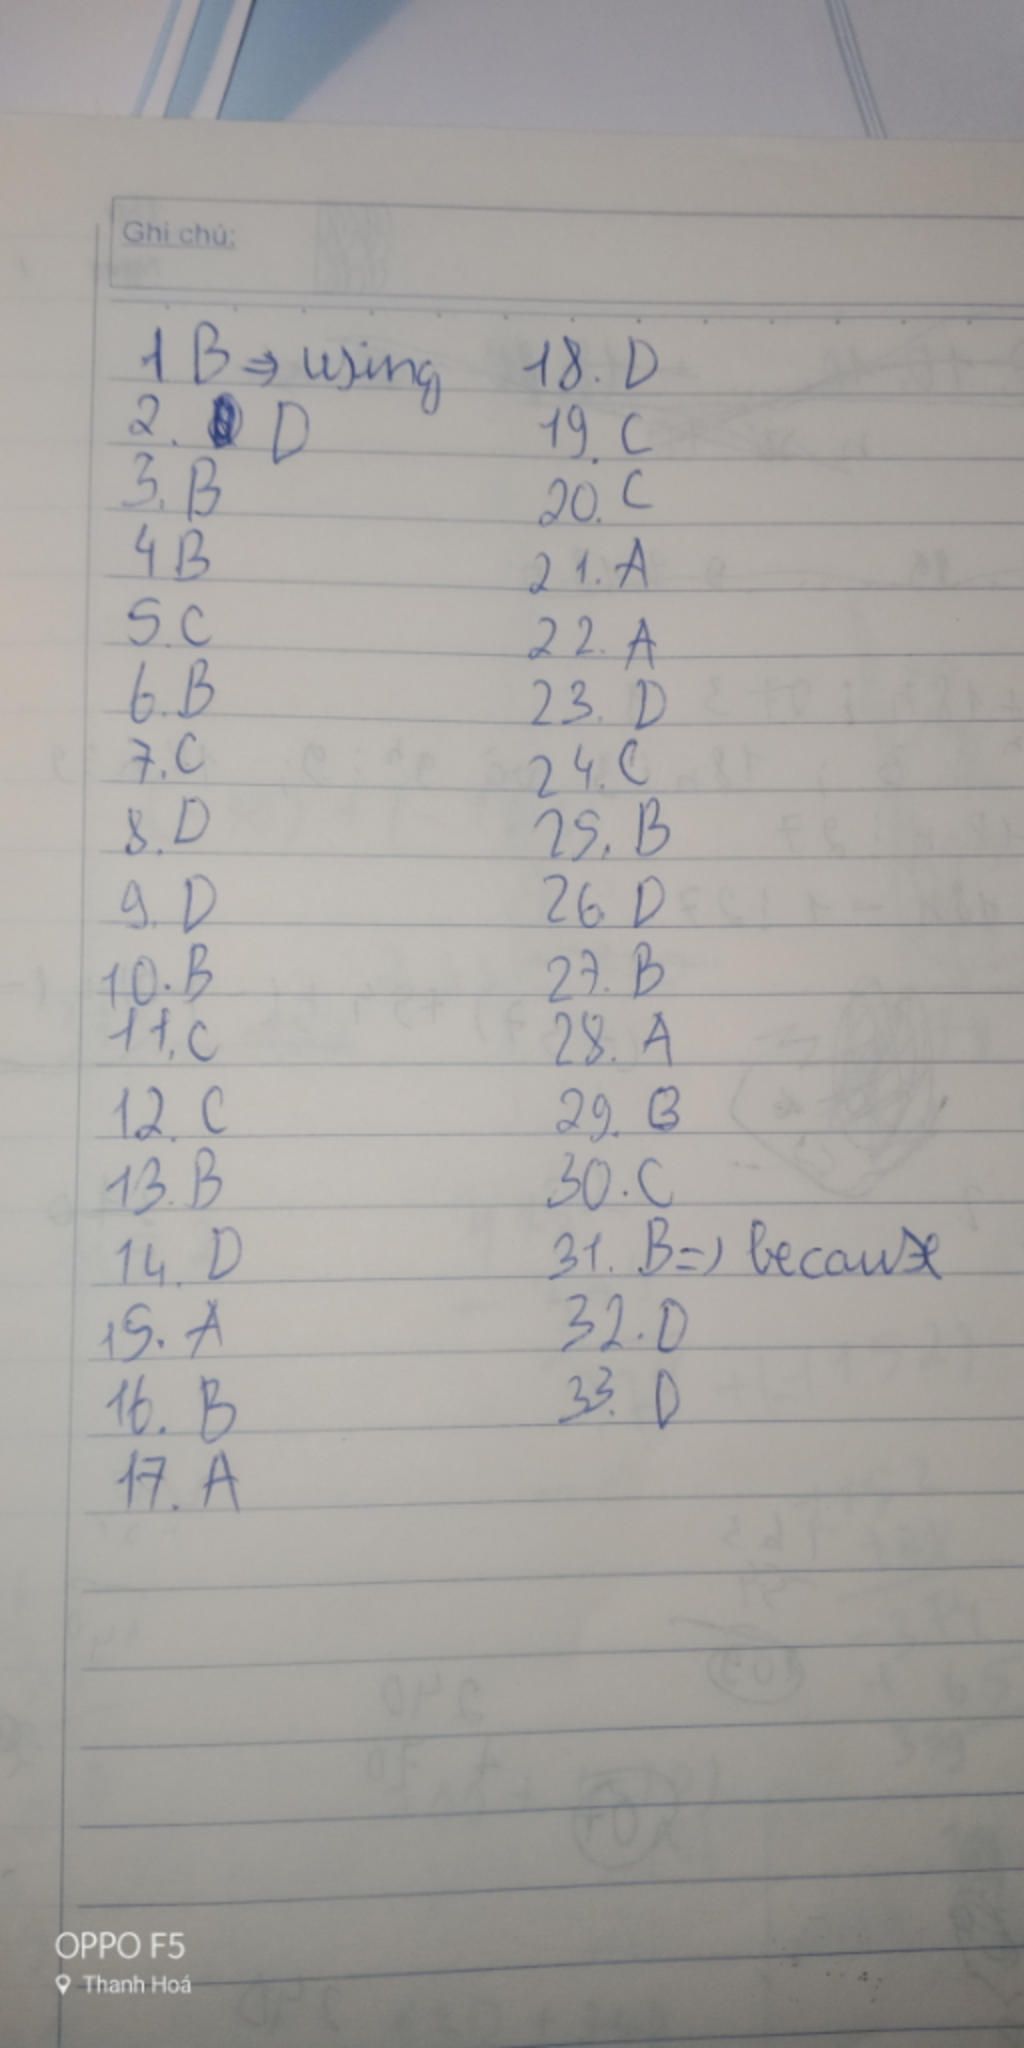 Ghi chú:
1 B => using
2. D
3. B
4 B
5. C
6. B
7. C
8. D
9. D
10. B
11. C
12. C
13. B
14. D
15. A
16. B
17. A
18. D
19. C
20. C
21. A
22. A
23. D
24. C
25. B
26. D
27. B
28. A
29. B
30. C
31. B => because
32. D
33. D
OPPO F5
Thanh Hoá